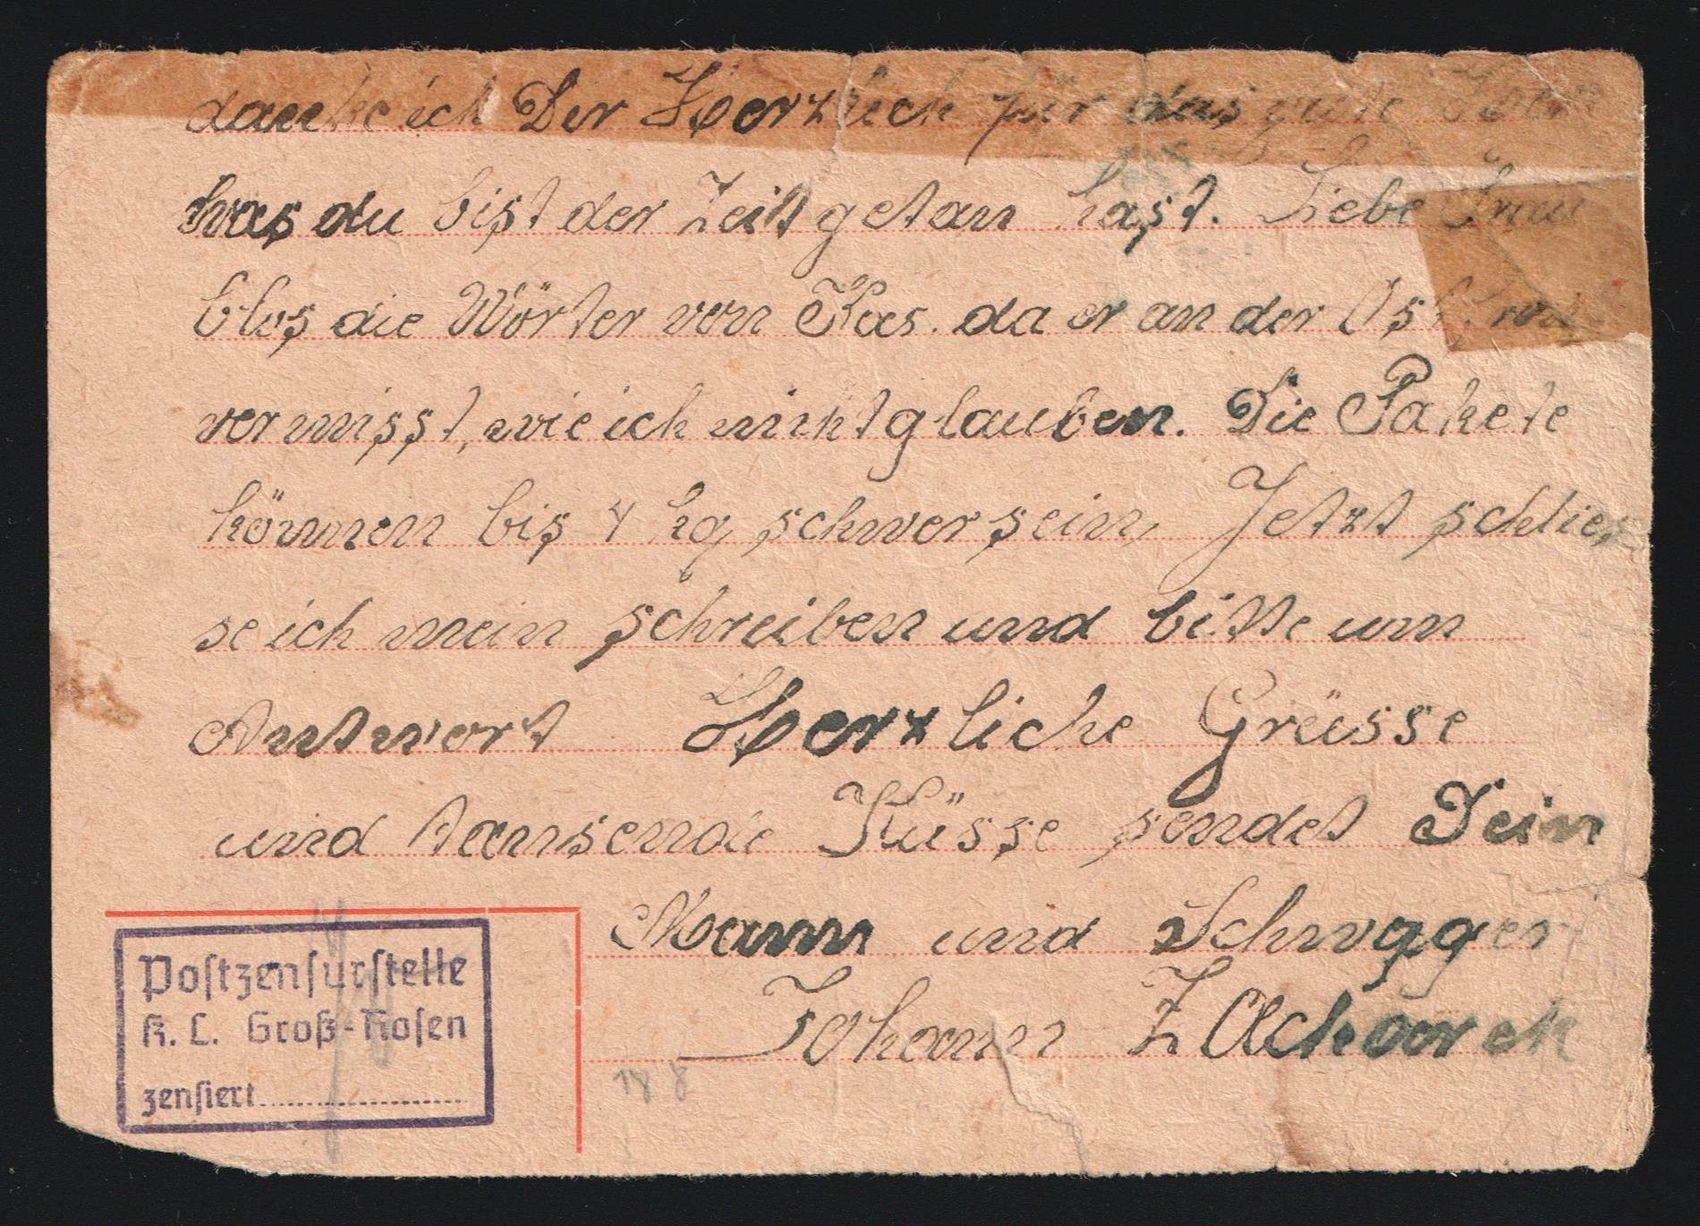 danke ich Dir Herzlich für das gute
was du bist der Zeitt getan hast. Liebe Frau
blos die Wörter von Kas. da er an der Ost
vermisst, wie ich nicht glauben. Die Pakete
können bis 4 kg schwer sein, Jetzt schlies
se ich mein schreiben und bitte um
Antwort Herzliche Grüsse
und tausende Küsse sendet Dein
Mann und Schwager
Johann
Postzensurstelle
K. L. Groß-Rosen
zensiert....................